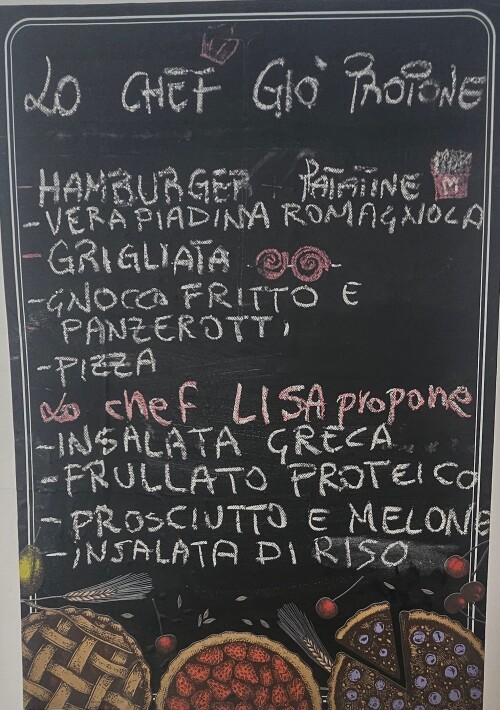 LO CHEF GIÒ PROPONE
- HAMBURGER - PATATINE M
- VERA PIADINA ROMAGNOLA
- GRIGLIATA
- GNOCCO FRITTO E
PANZEROTTI
- PIZZA
Lo chef LISA propone
- INSALATA GRECA
- FRULLATO PROTEICO
- PROSCIUTTO E MELONE
- INSALATA DI RISO